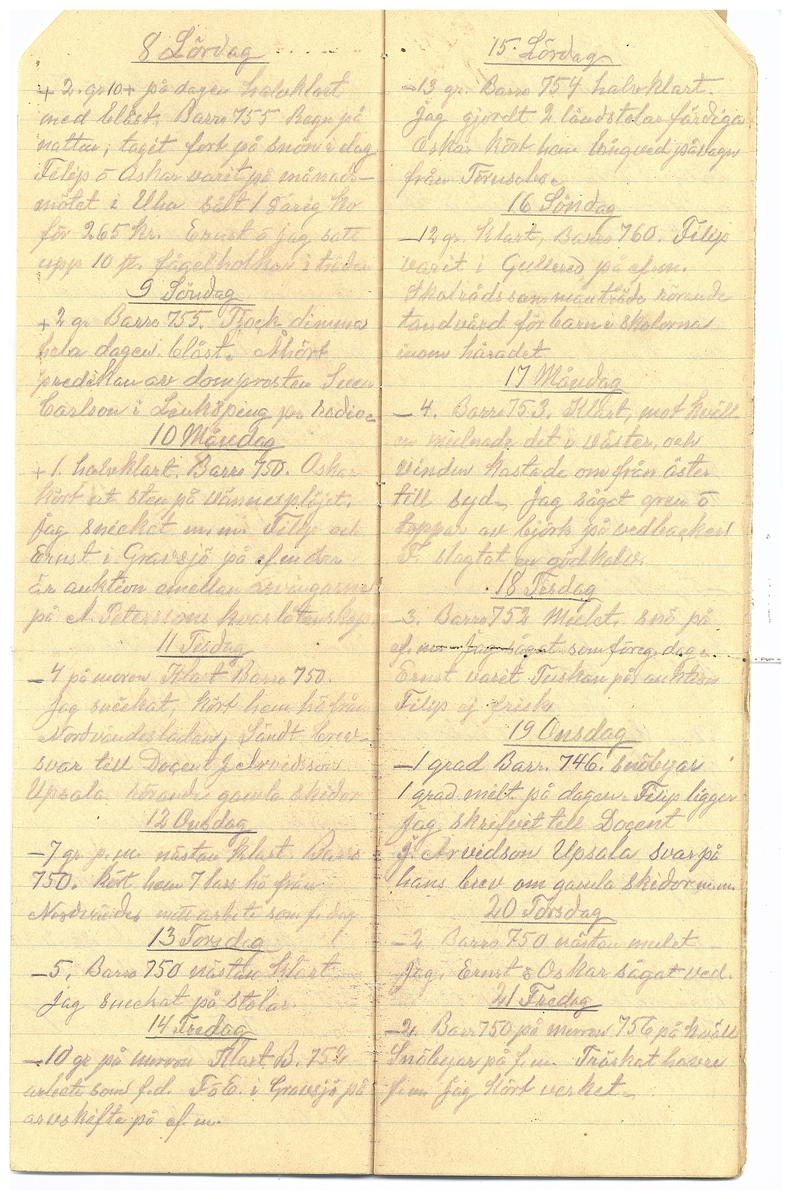 8 Lördag
+ 2. gr 10+ på dagen halvklart
med blåst. Barro 755 Regn på
natten, taget fort på snön i dag
Filip o Oskar varit på månads-
mötet i Ulva sålt 1 5årig ko
för 265 kr. Ernst o jag satt
upp 10 st. fågelholkar i träden
9 Söndag
+2 gr Barro 755. Tjock dimma
hela dagen. blåst. Åhört
predikan av domprosten Sven
Carlson i Linköping på radio.
10 Måndag
+ 1. halvklart. Barro 750. Oskar
kört ut sten på
jag snickat m. m. Filip och
Ernst i Gravsjö på ef. m den
är auktion emellan arvingarne
på A. Peterssons kvarlåtenskap
11 Tisdag
-4 på moron Klart Barro 750.
Jag snickat, kört hem hö från
Sändt brev-
svar till Docent J. Arvedsson
Upsala rörande gamla skidor
12 Onsdag
-7 gr f. m. nästan klart Barro
750. kört hem 7 lass hö från
mitt arbete som f. dag
13 Torsdag
-5. Barro 750 nästan klart
jag snickat på stolar.
14 Fredag
-10 gr på morron Klart B. 752
arbete som f. d. F o E. i Gravsjö på
arvskifte på ef. m.
15 Lördag
-13 gr. Barro 754 halvklart.
Jag gjordt 2 länstolar färdiga
Oskar kört hem långved på vagn
från
16 Söndag
-12 gr. klart, Barro 760. Filip
varit i Gullered på ef. m.
Skolrådssammanträde rörande
tandvård för barn i skolorna
inom häradet
17 Måndag
-4. Barro 753. Klart, mot kväll-
en mulnade det i väster, och
vinden kastade om från öster
till syd. Jag sågat gren o
toppar av björk på vedbacken
F. slagtat en gödkalv.
18 Tisdag
-3. Barro 752 Mulet. snö på
ef. m. jag sågat som föreg. dag.
Ernst varit Tuskan på auktion
Filip ej frisk
19 Onsdag
-1 grad Barr. 746. snöbyar
1 grad mildt på dagen. Filip ligger
Jag skrifvit till Docent
J. Arvidson Upsala svar på
hans brev om gamla skidor m. m.
20 Torsdag
-2 Barro 750 nästan mulet
Jag, Ernst o Oskar sågat ved.
21 Fredag
-2 Barr 750 på morron 756 på kväll
Snöbyar på f. m. Tröskat havre
f. m jag skört verket.